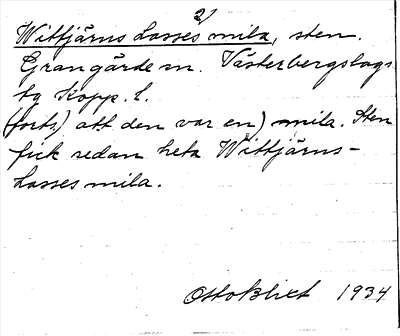 2)
Wittjärns Lasses mila, sten.
Grangärde sn. Västerbergslags
tg Kopp. l.
(forts.) att den var en) mila. Sten
fick redan heta Wittjärns-
Lasses mila.
Otto Blixt 1934